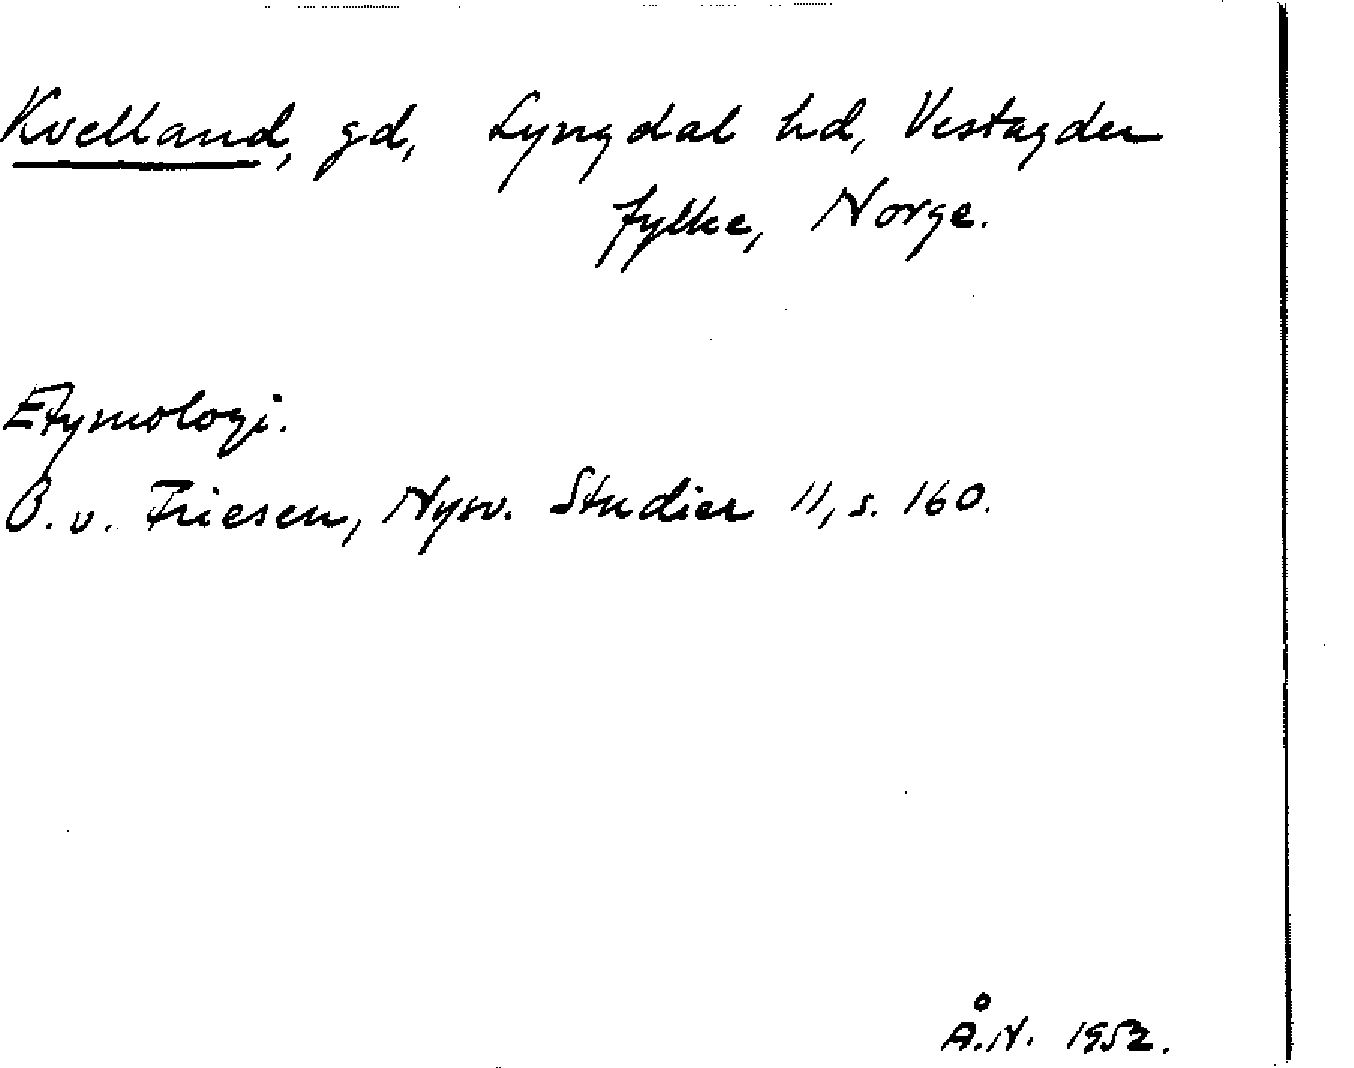 Kvelland, gd, Lyngdal hd, Vestagder
fylke, Norge.
Etymologi.
O. v. Friesen, Nysv. Studier 11, s. 160.
Å.N. 1952.